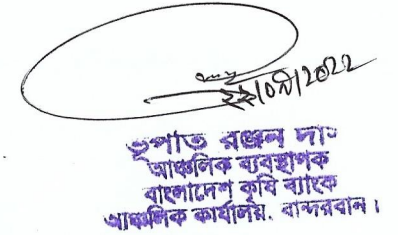 ২২/০৯/2022
ভূপাত রঞ্জন দাশ
আঞ্চলিক ব্যবস্থাপক
বাংলাদেশ কৃষি ব্যাংক
আঞ্চলিক কার্যালয়, বান্দরবান।